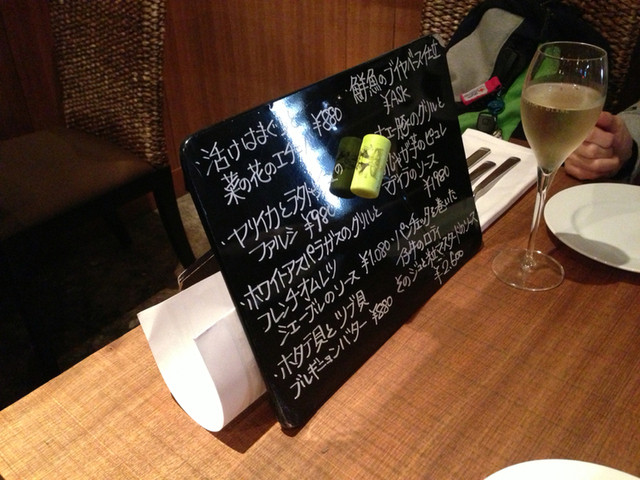 活けはまぐ
菜の花のエチ ¥880
ヤリイカとラタト の
ファルシ ¥980
・ホワイトアスパラガスのグリルと
フレンチオムレツ
シェーブルのソース ¥1,080
・ホタテ貝とツブ貝
ブルギニョンバター ¥880
鮮魚のブイヤベース仕立
¥ASK
豚のグリルと
じゃが芋のピュレ
ソース ¥1980
・パンチェッタを巻いた
のロティ
そのジュと粒マスタードのソース
¥2,600